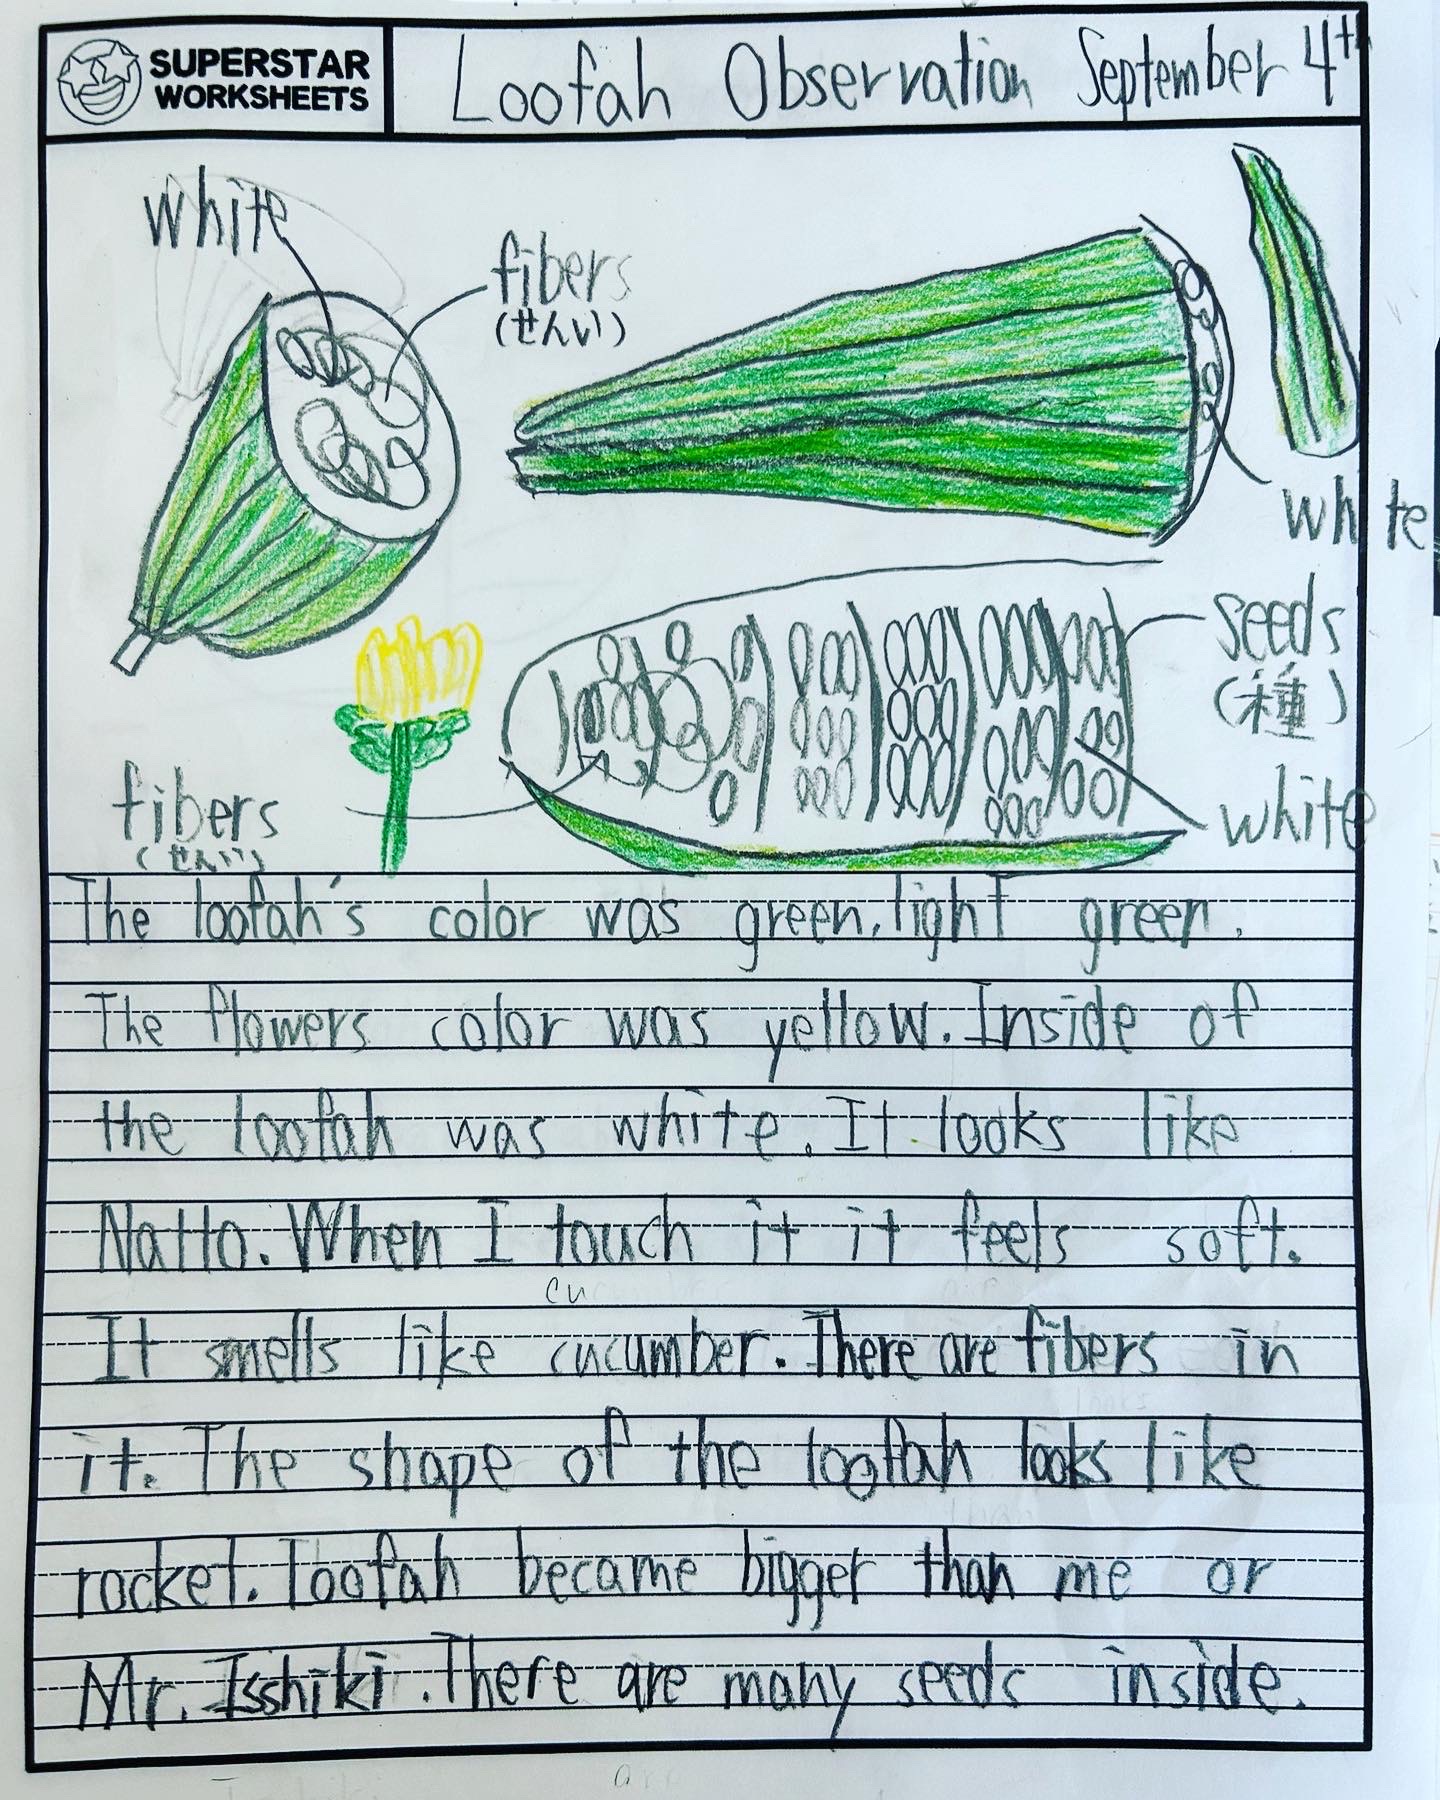 SUPERSTAR
WORKSHEETS
Loofah Observation September 4th
white
fibers
(せんい)
white
seeds
(種)
white
fibers
(せんい)
The loofah's color was green, light green.
The flowers color was yellow. Inside of
the loofah was white. It looks like
Natto. When I touch it it feels soft.
cu
It smells like cucumber. There are fibers in
it. The shape of the loofah looks like
rocket. Loofah became bigger than me or
Mr. Isshiki. There are many seeds inside.